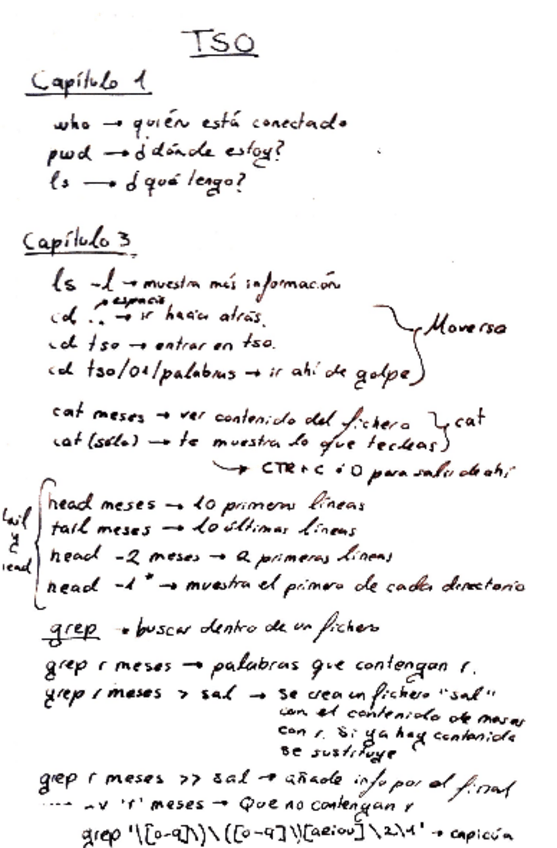 TSO
Capítulo 1
who → quién está conectado
pwd → ¿dónde estoy?
ls → ¿qué tengo?
Capítulo 3
ls -l → muestra más información
espacio
cd .. → ir hacia atrás.
cd tso → entrar en tso.
cd tso/01/palabras → ir ahí de golpe
Moverse
cat meses → ver contenido del fichero
cat (solo) → te muestra lo que tecleas
cat
→ CTR+C ó D para salir de ahí
tail y head
head meses → 10 primeras líneas
tail meses → 10 últimas líneas
head -2 meses → 2 primeras líneas
head -1 * → muestra el primero de cada directorio
grep → buscar dentro de un fichero
grep r meses → palabras que contengan r.
grep r meses > sal → se crea un fichero "sal"
con el contenido de meses
con r. Si ya hay contenido
se sustituye
grep r meses >> sal → añade info por el final
---- -v 'r' meses → Que no contengan r
grep '\([o-q]\)\([o-q]\)[aeiou]\2\1' → capicúa